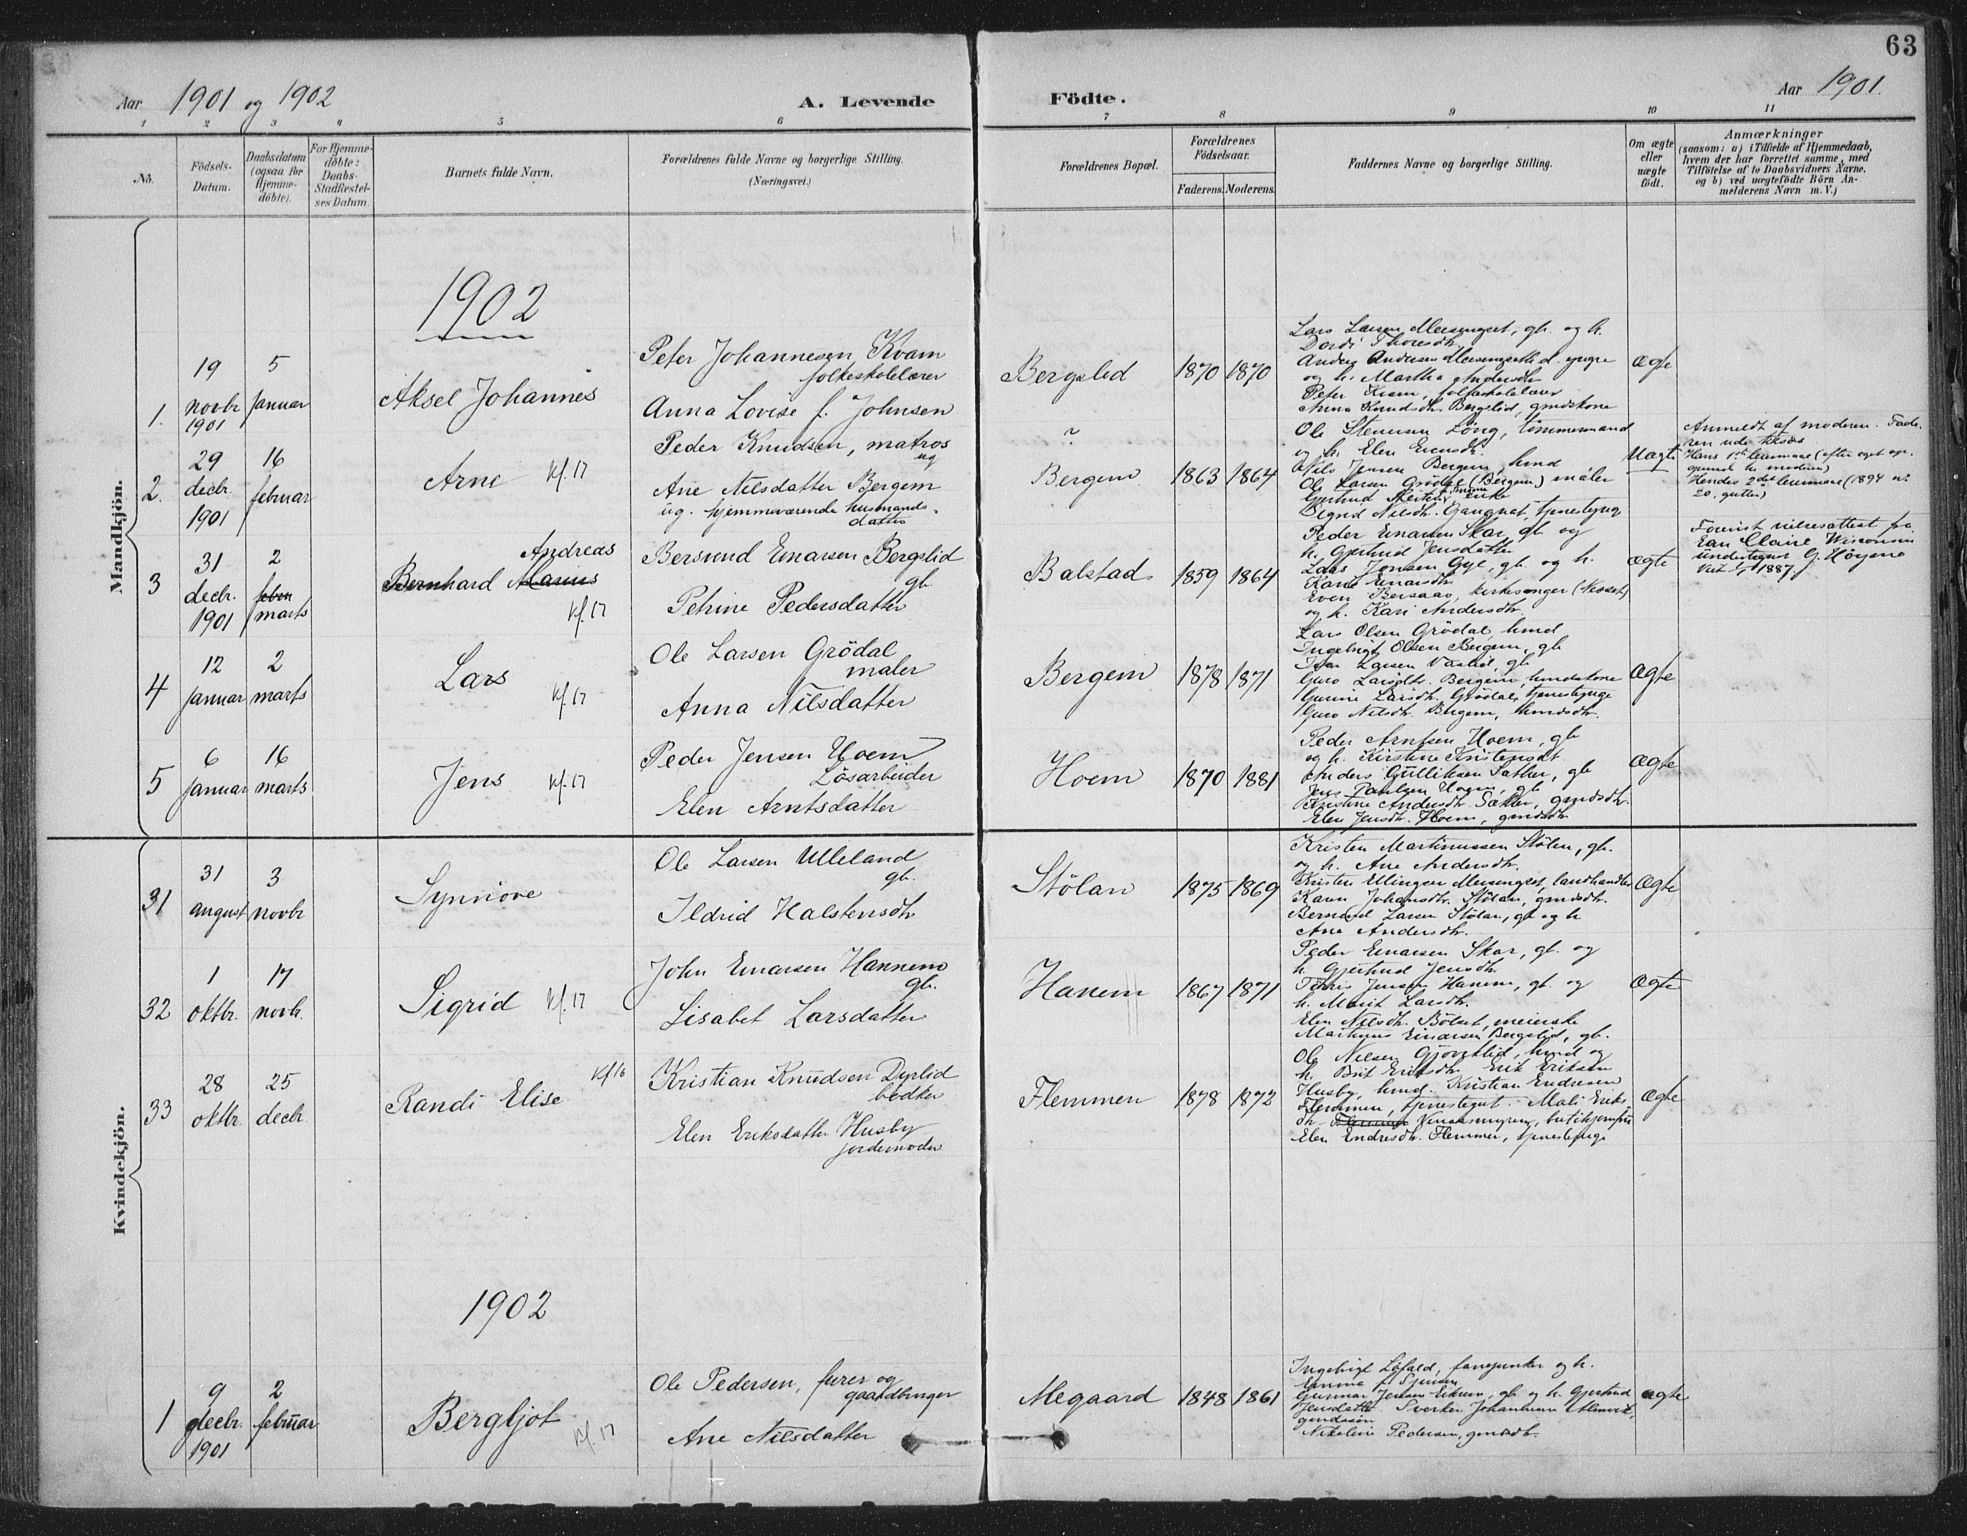 63
Aar 1901 og 1902
A. Levende Födte.
Aar 1901.
1 2 3 4 5 6 7 8 9 10 11
No.
Födsels-Datum.
Daabsdatum (ogsaa for Hjemme-döbte).
For Hjemme-döbte: Daabs-Stadfæstel-ses Datum.
Barnets fulde Navn.
Forældrenes fulde Navne og borgerlige Stilling.
(Næringsvei.)
Forældrenes Bopæl.
Forældrenes Födselsaar.
Faderens. Moderens.
Faddernes Navne og borgerlige Stilling.
Om ægte eller uægte födt.
Anmærkninger
(saasom: a) i Tilfælde af Hjemmedaab,
hvem der har forrettet samme, med
Tilföielse af to Daabsvidners Navne,
og b) ved uægtefödte Börn An-
melderens Navn m. V.)
Mandkjön.
1902
1.
19 novbr 1901
5 januar
Aksel Johannes
Peter Johannesen Kvam
folkeskolelærer
Anna Lovise f. Johnsen
Bergslid
1870 1870
Lars Larsen Meisingset, gb. og h.
Dordi Thoresdtr.
Anders Andersen Meisingseth d. yngre
og h. Martha Andersdtr
Peter Kvam, folkeskolelærer
Anna Knudsdtr. Bergslid, gmdskone
Ægte
2.
29 decbr. 1901
16 februar
Arne kf. 17
Peder Knudsen, matros
ug
Ane Nilsdatter Bergem
ug. hjemmeværende husmands-
datter
?
Bergem
1863 1864
Ole Stenersen Löng, tömmermand
og h. Elen Evensdtr.
Nils Jensen Bergem, hmd
Ole Larsen Grödal (Bergem) maler
Sigrid Nilsdtr. Gangnat, tjenestepige
Uægte
Anmeldt af moderen. Fade-
ren ude tilsøs
Hans 1ste leiermaal (efter eget op-
Hendes 2det leiermaal (1894 nr
20, gutter)
3
31 decbr. 1901
2 febru marts
Andreas
Bernhard Marius
kf. 17
Bersvend Einarsen Bergslid
gb.
Petrine Pedersdatter
Balstad
1859 1864
Peder Einarsen Skar, gb og
h. Gjertrud Jensdatter
Lars Jonsen Gyl, gb. og h.
Karen Einarsdtr.
Even Bersaas, kirkesanger (Nesset)
og h. Kari Andersdtr.
Ægte
Forevist vielsesattest fra
Eau Claire Wisconsin
undertegnet G. Höyme
4
12 januar
2 marts
Lars
kf. 17
Ole Larsen Grödal
maler
Anna Nilsdatter
Bergem
1878 1871
Lars Olsen Grödal, hmd
Ingebrigt Olsen Bergem, gb
Guro Larsdtr. Bergem, hmdskone
Gunine Larsdtr. Grödal, tjenestepige
Guro Nilsdtr. Bergem, hmdsdtr.
Ægte
5
6 januar
16 marts
Jens kf. 17
Peder Jensen Hoem
Lösarbeider
Elen Arntsdatter
Hoem
1870 1881
Peder Arntsen Hoem, gb
og h. Kirstine Kristensdt
Anders Gulliksen Sæther, gb
Jens Paulsen Hoem, gb
Kristine Andersdtr. Sæther, gmdsdtr.
Elen Jensdtr. Hoem, gmdsdtr
Ægte
Kvindekjön.
31
31 august
3 novbr
Synnöve
Ole Larsen Ulleland
gb.
Ildrid Halstensdtr
Stölan
1875 1869
Kristen Martinussen Stölen, gb.
og h. Ane Andersdtr.
Kristen Ellingsen Meisingset, landhandler
Karen Johansdtr. Stölan, gmdsdtr.
Bernhard Larsen Stölan, gb og h
Ane Andersdtr.
Ægte
32
1 oktbr.
17 novbr.
Sigrid kf. 17
John Einarsen Hannem
gb.
Lisabet Larsdatter
Hanem
1867 1871
Peder Einarsen Skar, gb. og
h. Gjertrud Jensdtr
Jensen Hanem, gb. og
h. Marit Larsdtr.
Elen Nilsdtr. Bölset, meierske
Einarsen Bergslid, gb.
Ægte
33
28 oktbr.
25 decbr.
Randi Elise
kf 16
Kristian Knudsen Dyrlid
bødker
Elen Eriksdatter Husby
jordemoder
Flemmen
1878 1872
Ole Nilsen Gjövetlid, hmd og
h. Brit Eriksdtr Erik Eriksen
Husby, hmd. Kristian Endresen
Flemmen, tjenestegut. Mali Eriks-
dtr. butikjomfru
Elen Endresdtr. Flemmen, tjenestepige
Ægte
1902
1
9 decbr. 1901
2 februar
Bergljot kf. 17
Ole Pedersen, furer og
gaardbruger
Ane Nilsdatter
Megaard
1848 1861
Ingebrigt Löfald, fanejunker og h.
Gunnar Jensen Eikrem, gb og h. Gjertrud
Jensdatter Sverker Johannesen
gmdssön
Nikoline Pedersen, gmdsdtr.
ægte